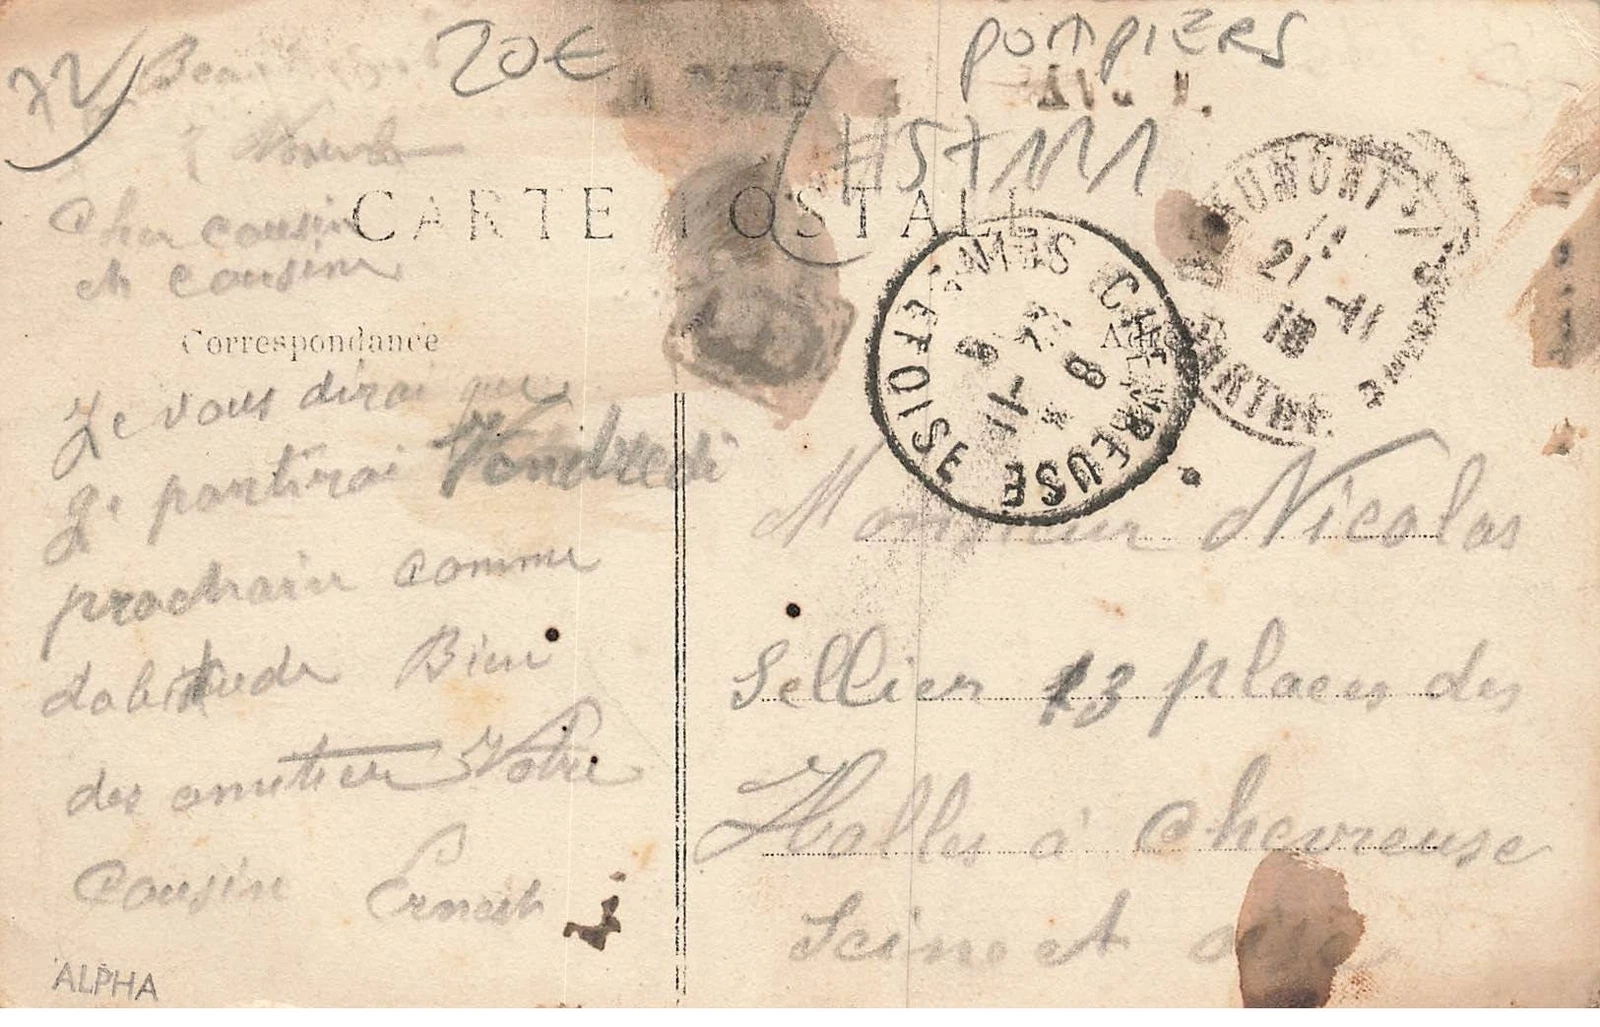 72
20€
POMPIERS
#57111
CARTE POSTALE
Cher cousin
et cousine
Correspondance
Je vous dirai que
Je partirai Vendredi
prochain comme
dabitude Bien
des amitier Votre
Cousin Ernest
ALPHA
BEAUMONT S/ SARTHE
21 -11
CHEVREUSE
SEINE-ET-OISE
8
Monsieur Nicolas
Sellier 13 places des
Halles à Chevreuse
Seine et oise